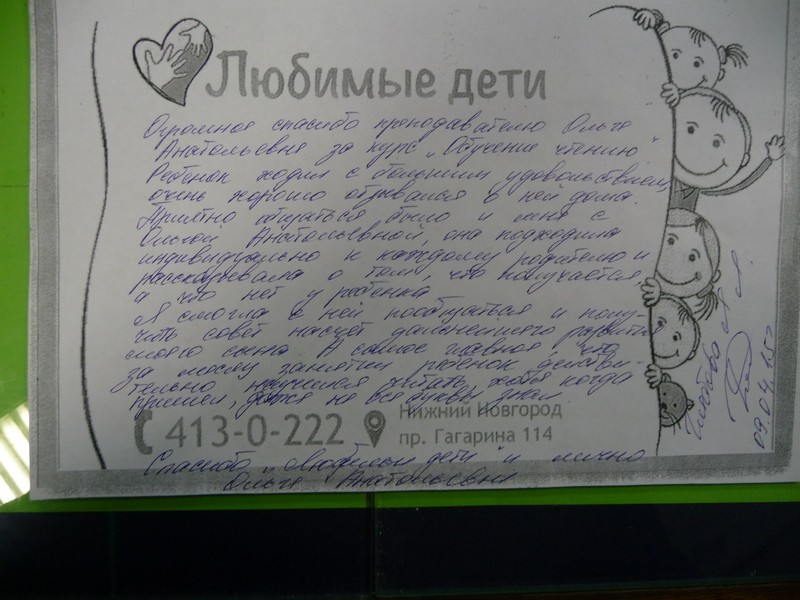 Любимые дети
Огромное спасибо преподавателю Ольге
Анатольевне за курс „Обучение чтению"
Ребёнок ходил с большим удовольствием,
очень хорошо отзывался о ней дома.
Приятно общаться было и мне с
Ольгой Анатольевной, она подходила
индивидуально к каждому родителю и
рассказывала о том, что получается,
а что нет у ребенка
Я смогла с ней пообщаться и полу-
чить совет насчет дальнейшего развития
моего сына. А самое главное, что
за месяц занятий ребенок действи-
тельно научился читать, хотя когда
пришел, даже не все буквы знал.
413-0-222
Нижний Новгород
пр. Гагарина 114
Спасибо „Любимые дети" и лично
Ольге Анатольевне
09.04.15г